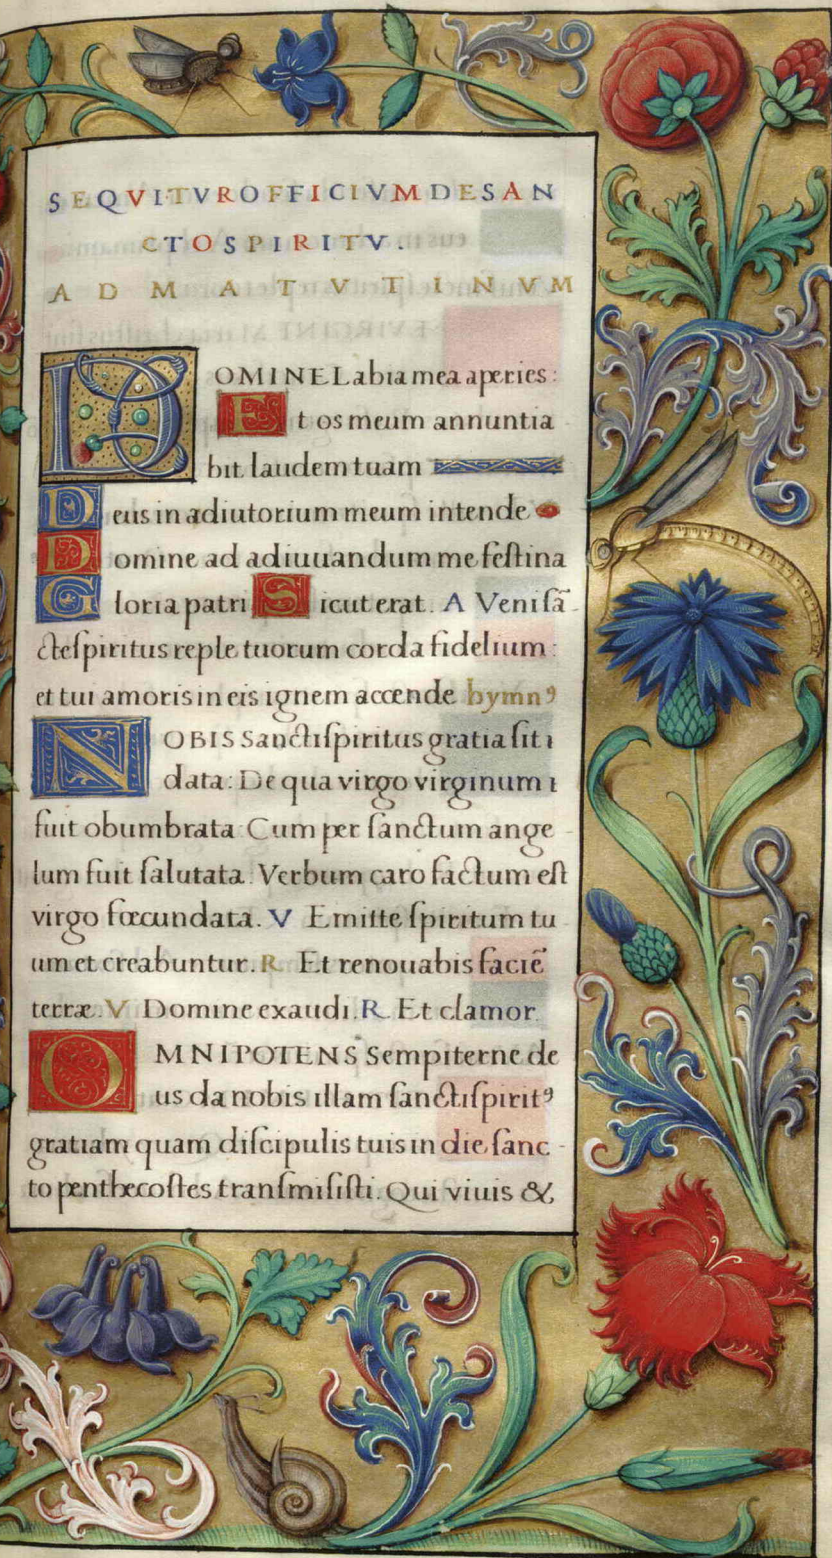 SEQVITVR OFFICIVM DE SAN
CTO SPIRITV.
AD MATVTINVM
DOMINE Labia mea aperies:
Et os meum annuntia
bit laudem tuam
Deus in adiutorium meum intende
Domine ad adiuuandum me feſtina
Gloria patri Sicut erat. A Veni ſã-
cte ſpiritus reple tuorum corda fidelium:
et tui amoris in eis ignem accende hymnꝰ
NOBIS Sancti ſpiritus gratia ſit ı
data: De qua virgo virginum ı
fuit obumbrata: Cum per ſanctum ange-
lum fuit ſalutata: Verbum caro factum eſt
virgo fœcundata. V Emitte ſpiritum tu
um et creabuntur. R Et renouabis faciẽ
terræ. V Domine exaudi. R Et clamor.
OMNIPOTENS Sempiterne de
us da nobis illam ſancti ſpiritꝰ
gratiam quam diſcipulis tuis in die ſanc-
to penthecoſtes tranſmiſiſti. Qui viuis &